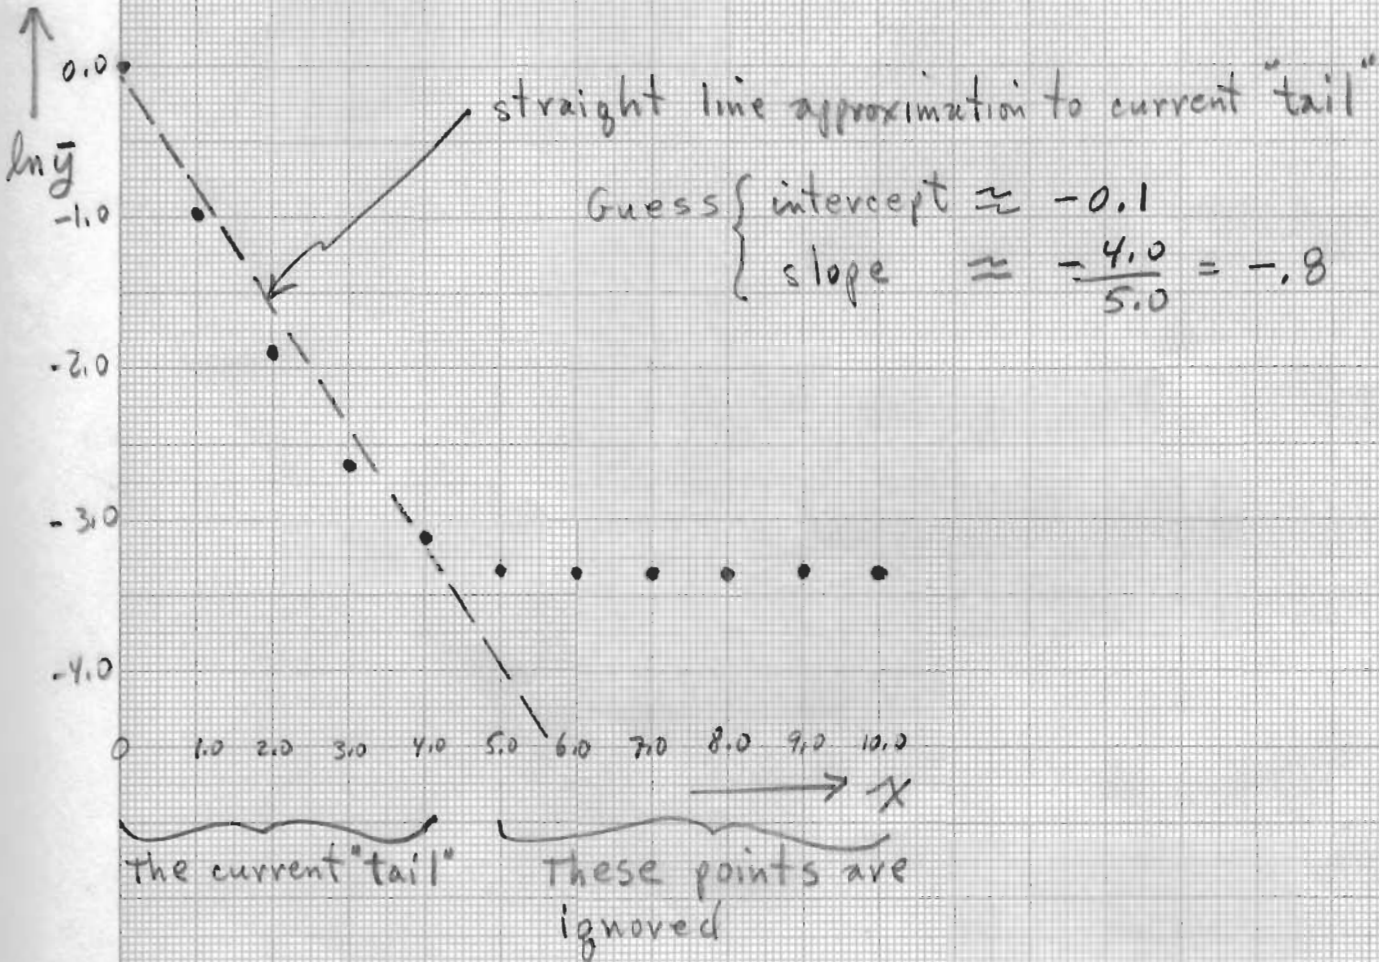 0.0
straight line approximation to current "tail"
ln ȳ
Guess { intercept ≈ -0.1
-1.0
slope ≈ -4.0/5.0 = -.8
-2.0
-3.0
-4.0
0 1.0 2.0 3.0 4.0 5.0 6.0 7.0 8.0 9.0 10.0
x
The current "tail"
These points are
ignored